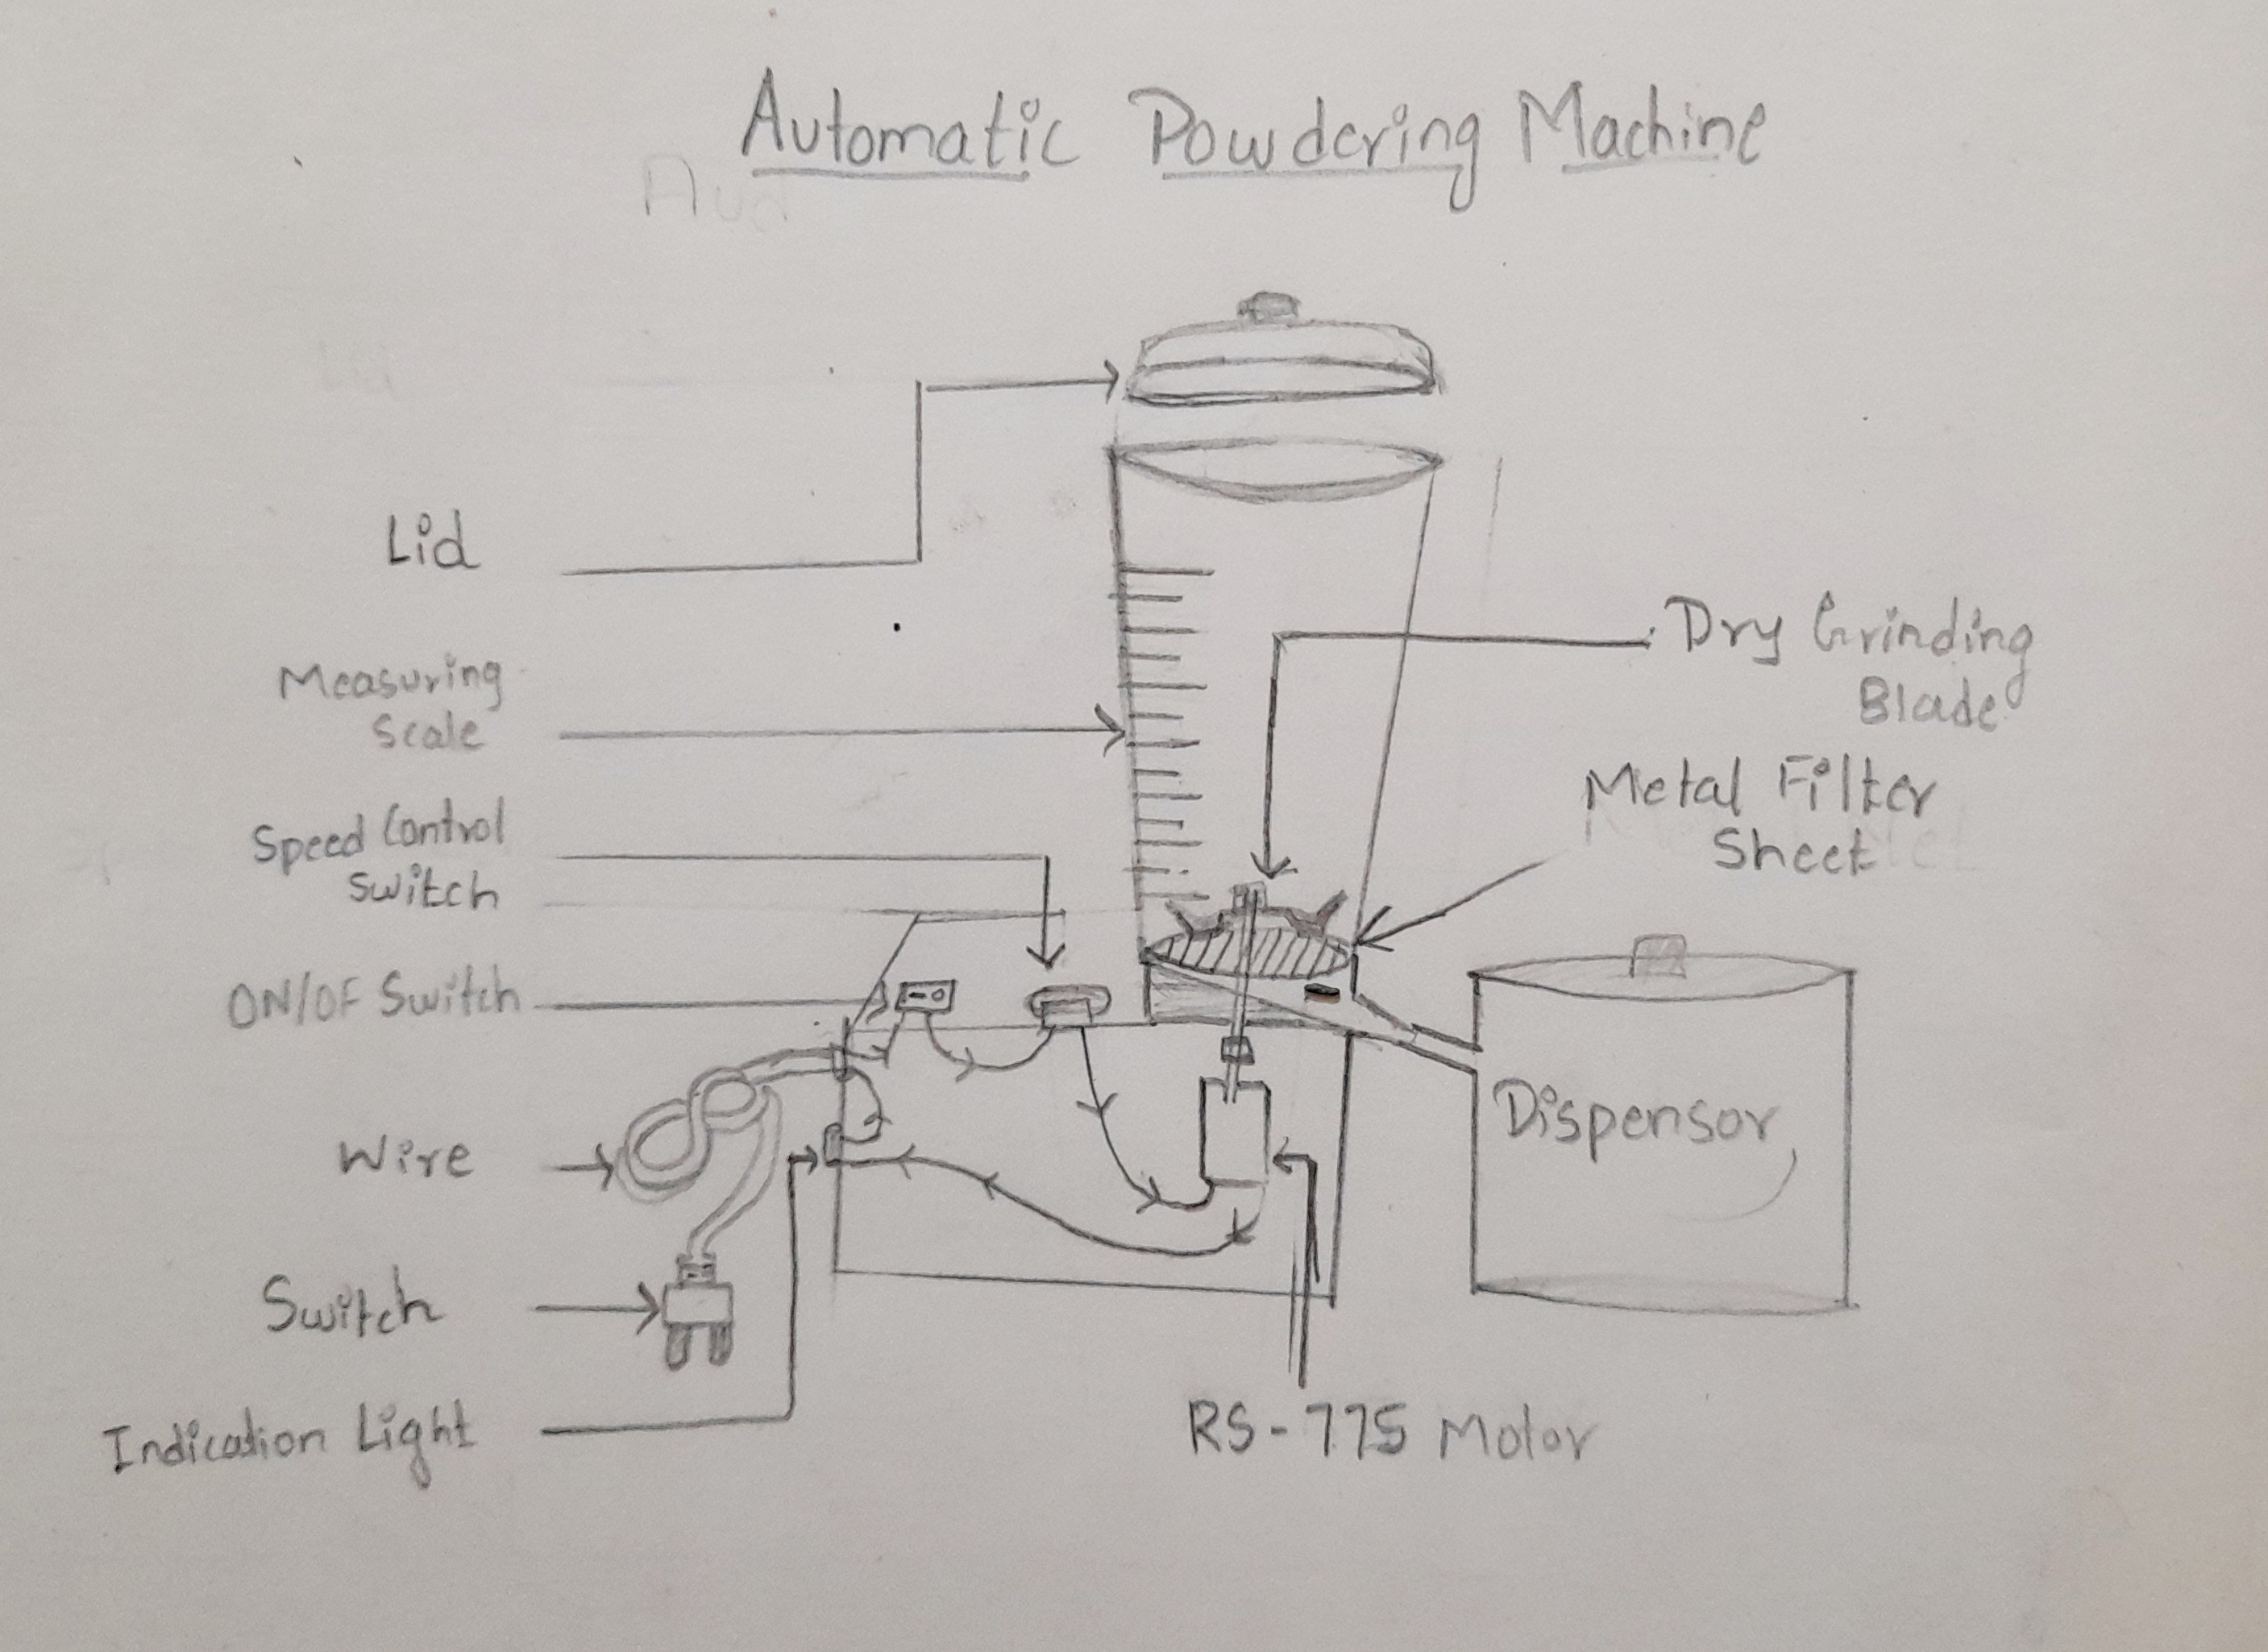 Automatic Powdering Machine
Lid
Measuring
Scale
Speed Control
Switch
ON/OF Switch
Wire
Switch
Indication Light
Dry Grinding
Blade
Metal Filter
Sheet
Dispensor
RS-775 Motor